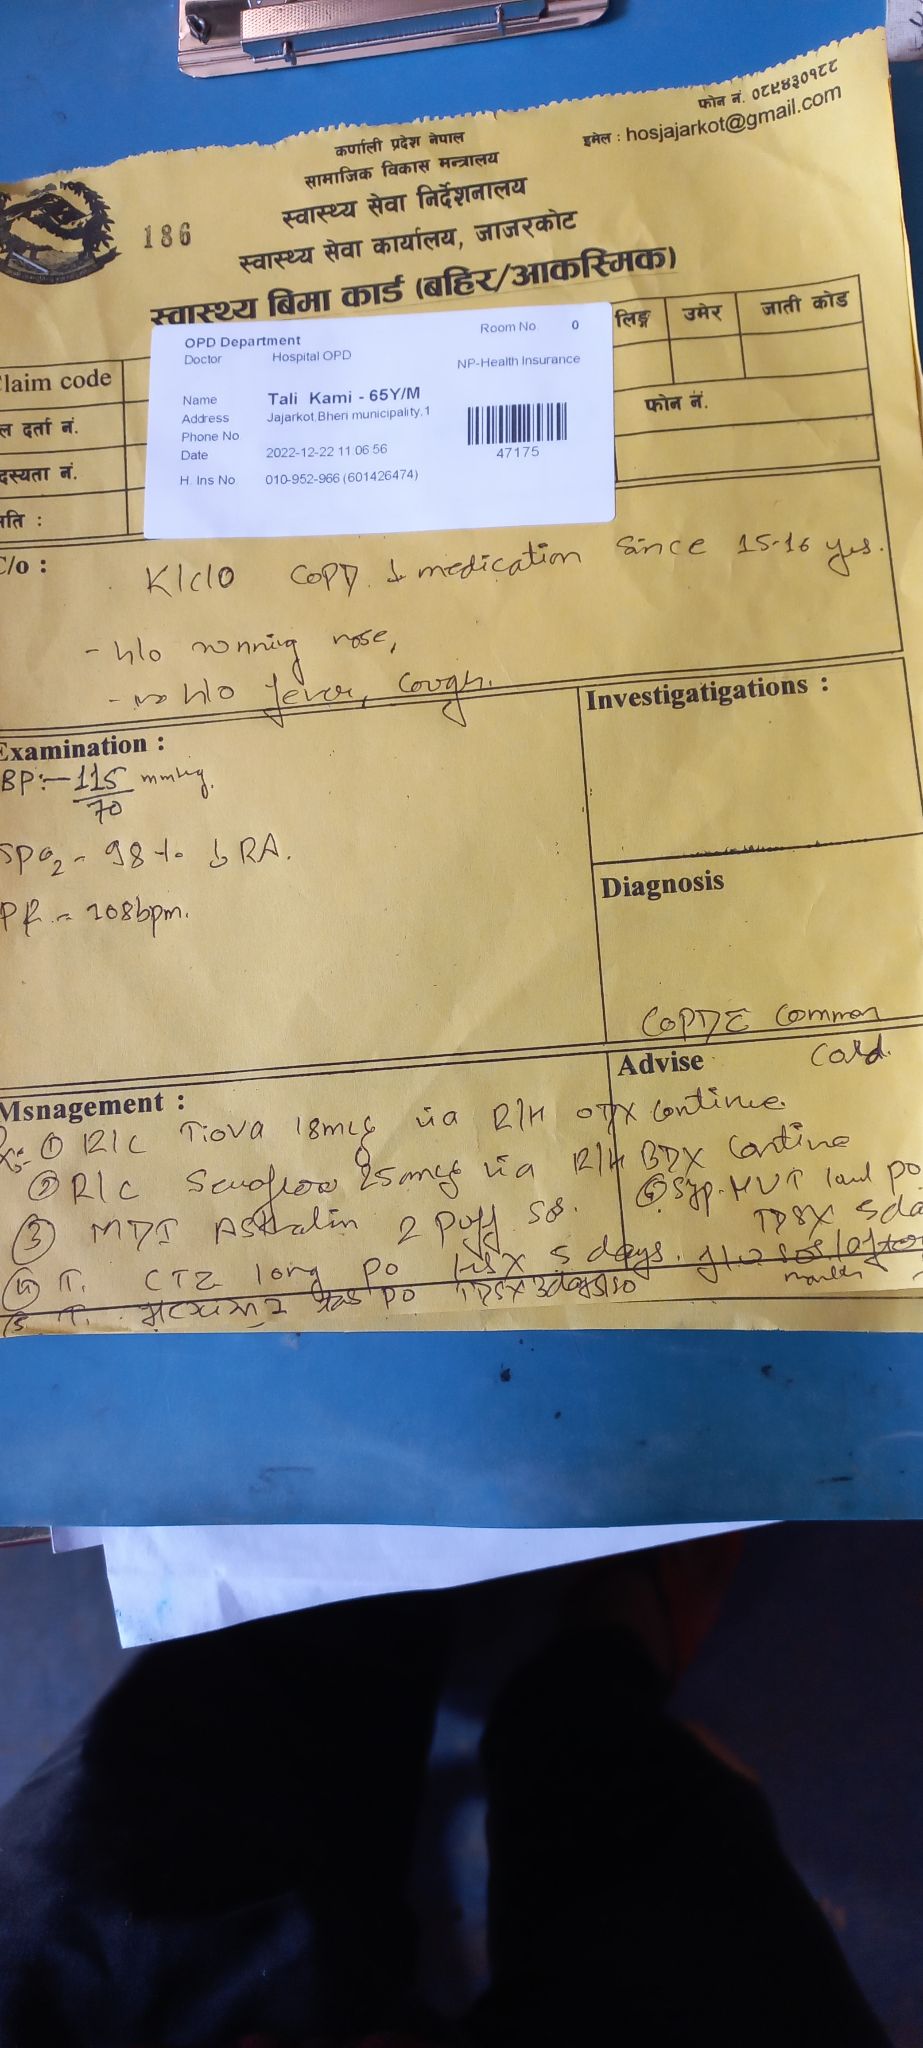 फोन नं. ०८९४३०१८८
इमेल : hosjajarkot@gmail.com
कर्णाली प्रदेश नेपाल
सामाजिक विकास मन्त्रालय
स्वास्थ्य सेवा निर्देशनालय
स्वास्थ्य सेवा कार्यालय, जाजरकोट
186
स्वास्थ्य बिमा कार्ड (बहिर/आकस्मिक)
लिङ्ग उमेर जाती कोड
OPD Department Room No 0
Doctor Hospital OPD NP-Health Insurance
Name Tali Kami - 65Y/M
Address Jajarkot,Bheri municipality,1
Phone No
Date 2022-12-22 11 06 56
47175
H. Ins No 010-952-966 (601426474)
laim code
ल दर्ता नं. फोन नं.
दस्यता नं.
ति :
/o :
K/c/o COPD medication since 15-16 yrs.
- h/o running nose,
- no h/o fever, cough.
Examination :
BP:- 115/70 mmHg.
SpO2 - 98 % RA.
PR - 108bpm.
Investigatigations :
Diagnosis
COPD Common
Cold.
Msnagement :
Advise
① R/C Tiova 18mcg via R/H OD X Continue.
② R/C 25mcg via R/H BD X Continue
③ MDI Asthalin 2 Puff SOS.
④ T. CTZ PO HS X 5 days.
T. PO TDS X 3days
⑥ Syp. PO
TDS X 5da